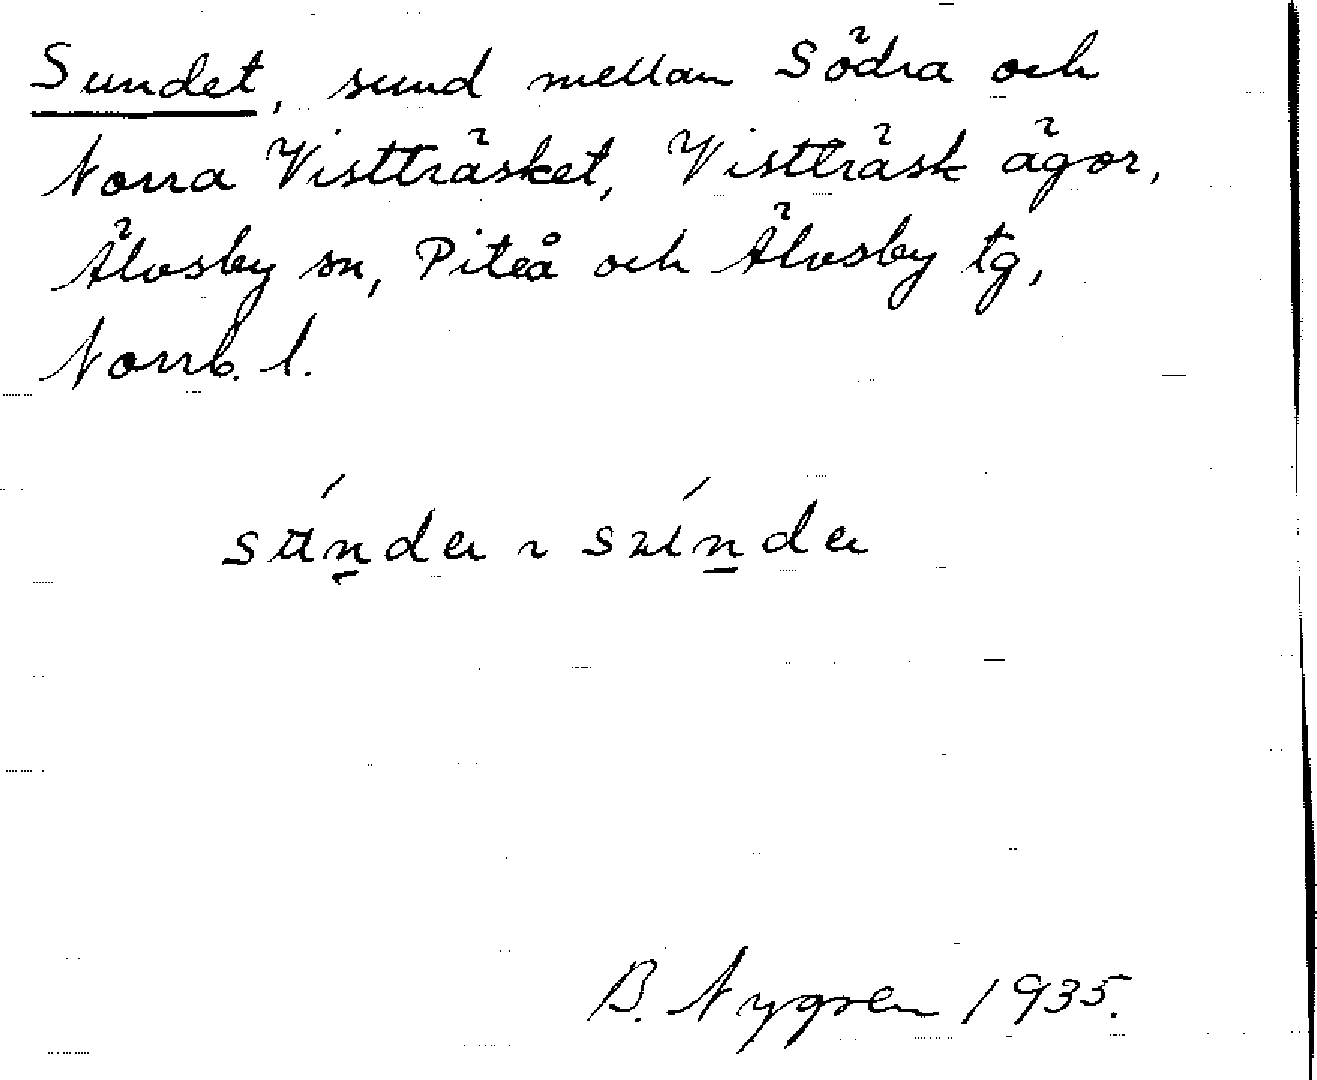 Sundet, sund mellan Södra och
Norra Vistträsket, Vistträsk ägor,
Älvsby sn, Piteå och Älvsby tg,
Norrb. l.
B. Nygren 1935.